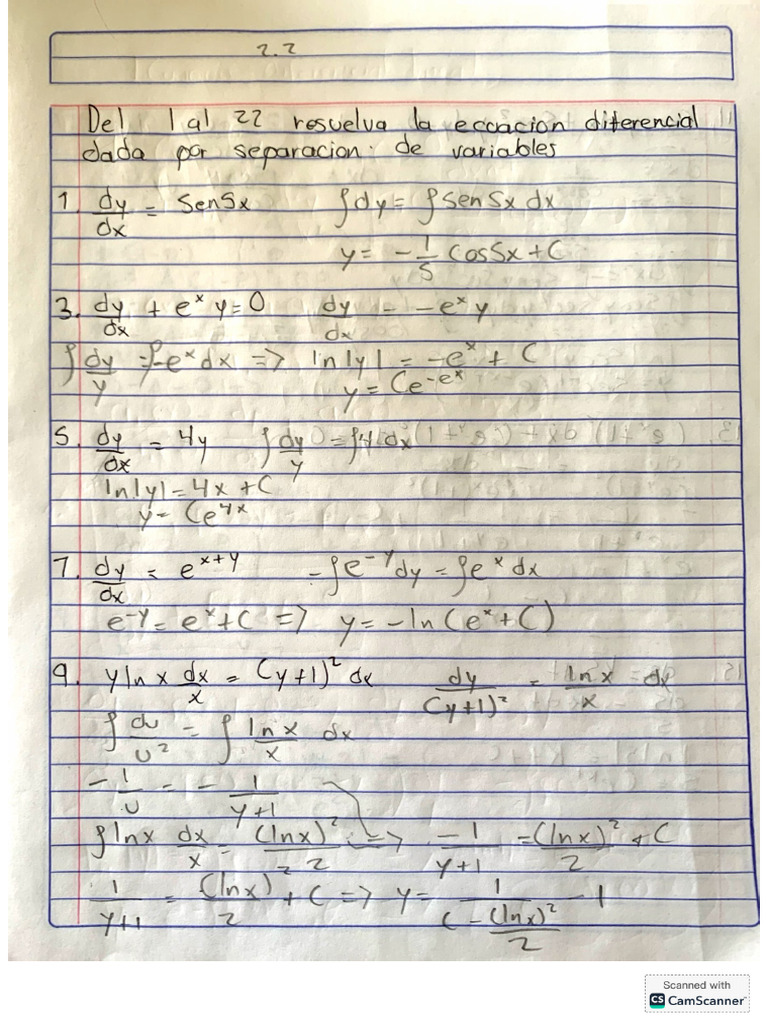 2.2
Del 1 al 22 resuelva la eccacion diferencial
dada por separacion de variables
1. dy/dx = Sen5x ∫dy = ∫Sen5x dx
y = -1/5 Cos5x + C
3. dy/dx + e^x y = 0 dy/dx = -e^x y
∫dy/y = ∫-e^x dx => ln|y| = -e^x + C
y = Ce^-e^x
5. dy/dx = 4y ∫dy/y = ∫4 dx
ln|y| = 4x + C
y = Ce^4x
7. dy/dx = e^x+y = ∫e^-y dy = ∫e^x dx
e^-y = e^x + C => y = -ln(e^x + C)
9. y ln x dx/x = (y+1)^2 dx dy/(y+1)^2 = ln x/x = dx
∫du/u^2 = ∫ln x/x dx
-1/u = -1/y+1
∫lnx dx/x = (lnx)^2/2 => -1/y+1 = (lnx)^2/2 + C
1/y+1 = (lnx)^2/2 + C => y = 1/C-(lnx)^2/2 - 1
Scanned with
CS CamScanner